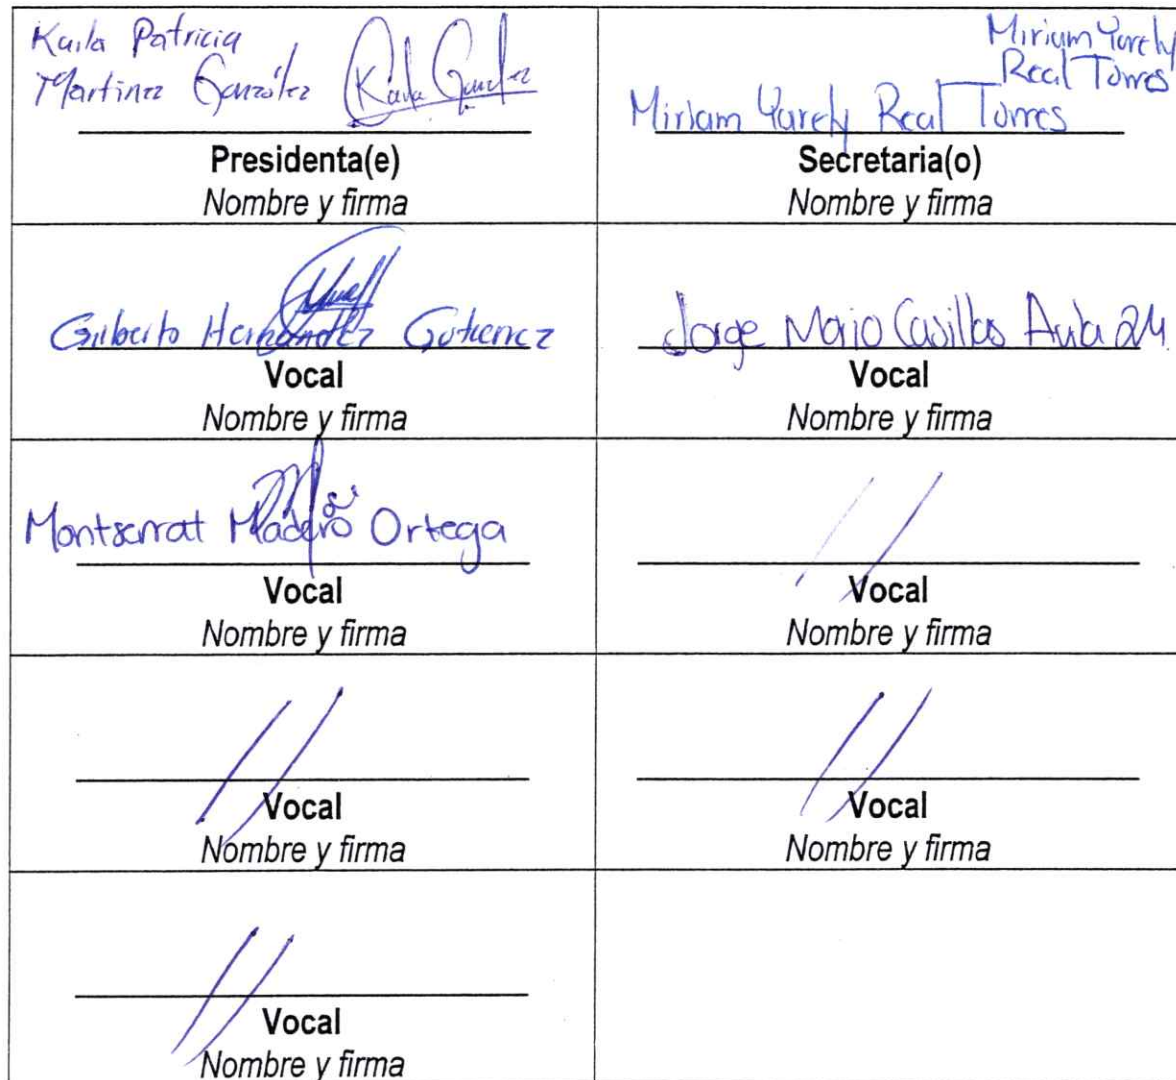 Karla Patricia
Martinez González Karla González
Presidenta(e)
Nombre y firma
Miriam Yarely
Real Torres
Miriam Yarely Real Torres
Secretaria(o)
Nombre y firma
Gilberto Hernández Gutierrez
Vocal
Nombre y firma
Jorge Mario Casillas Avila 24
Vocal
Nombre y firma
Montserrat Madero Ortega
Vocal
Nombre y firma
Vocal
Nombre y firma
Vocal
Nombre y firma
Vocal
Nombre y firma
Vocal
Nombre y firma